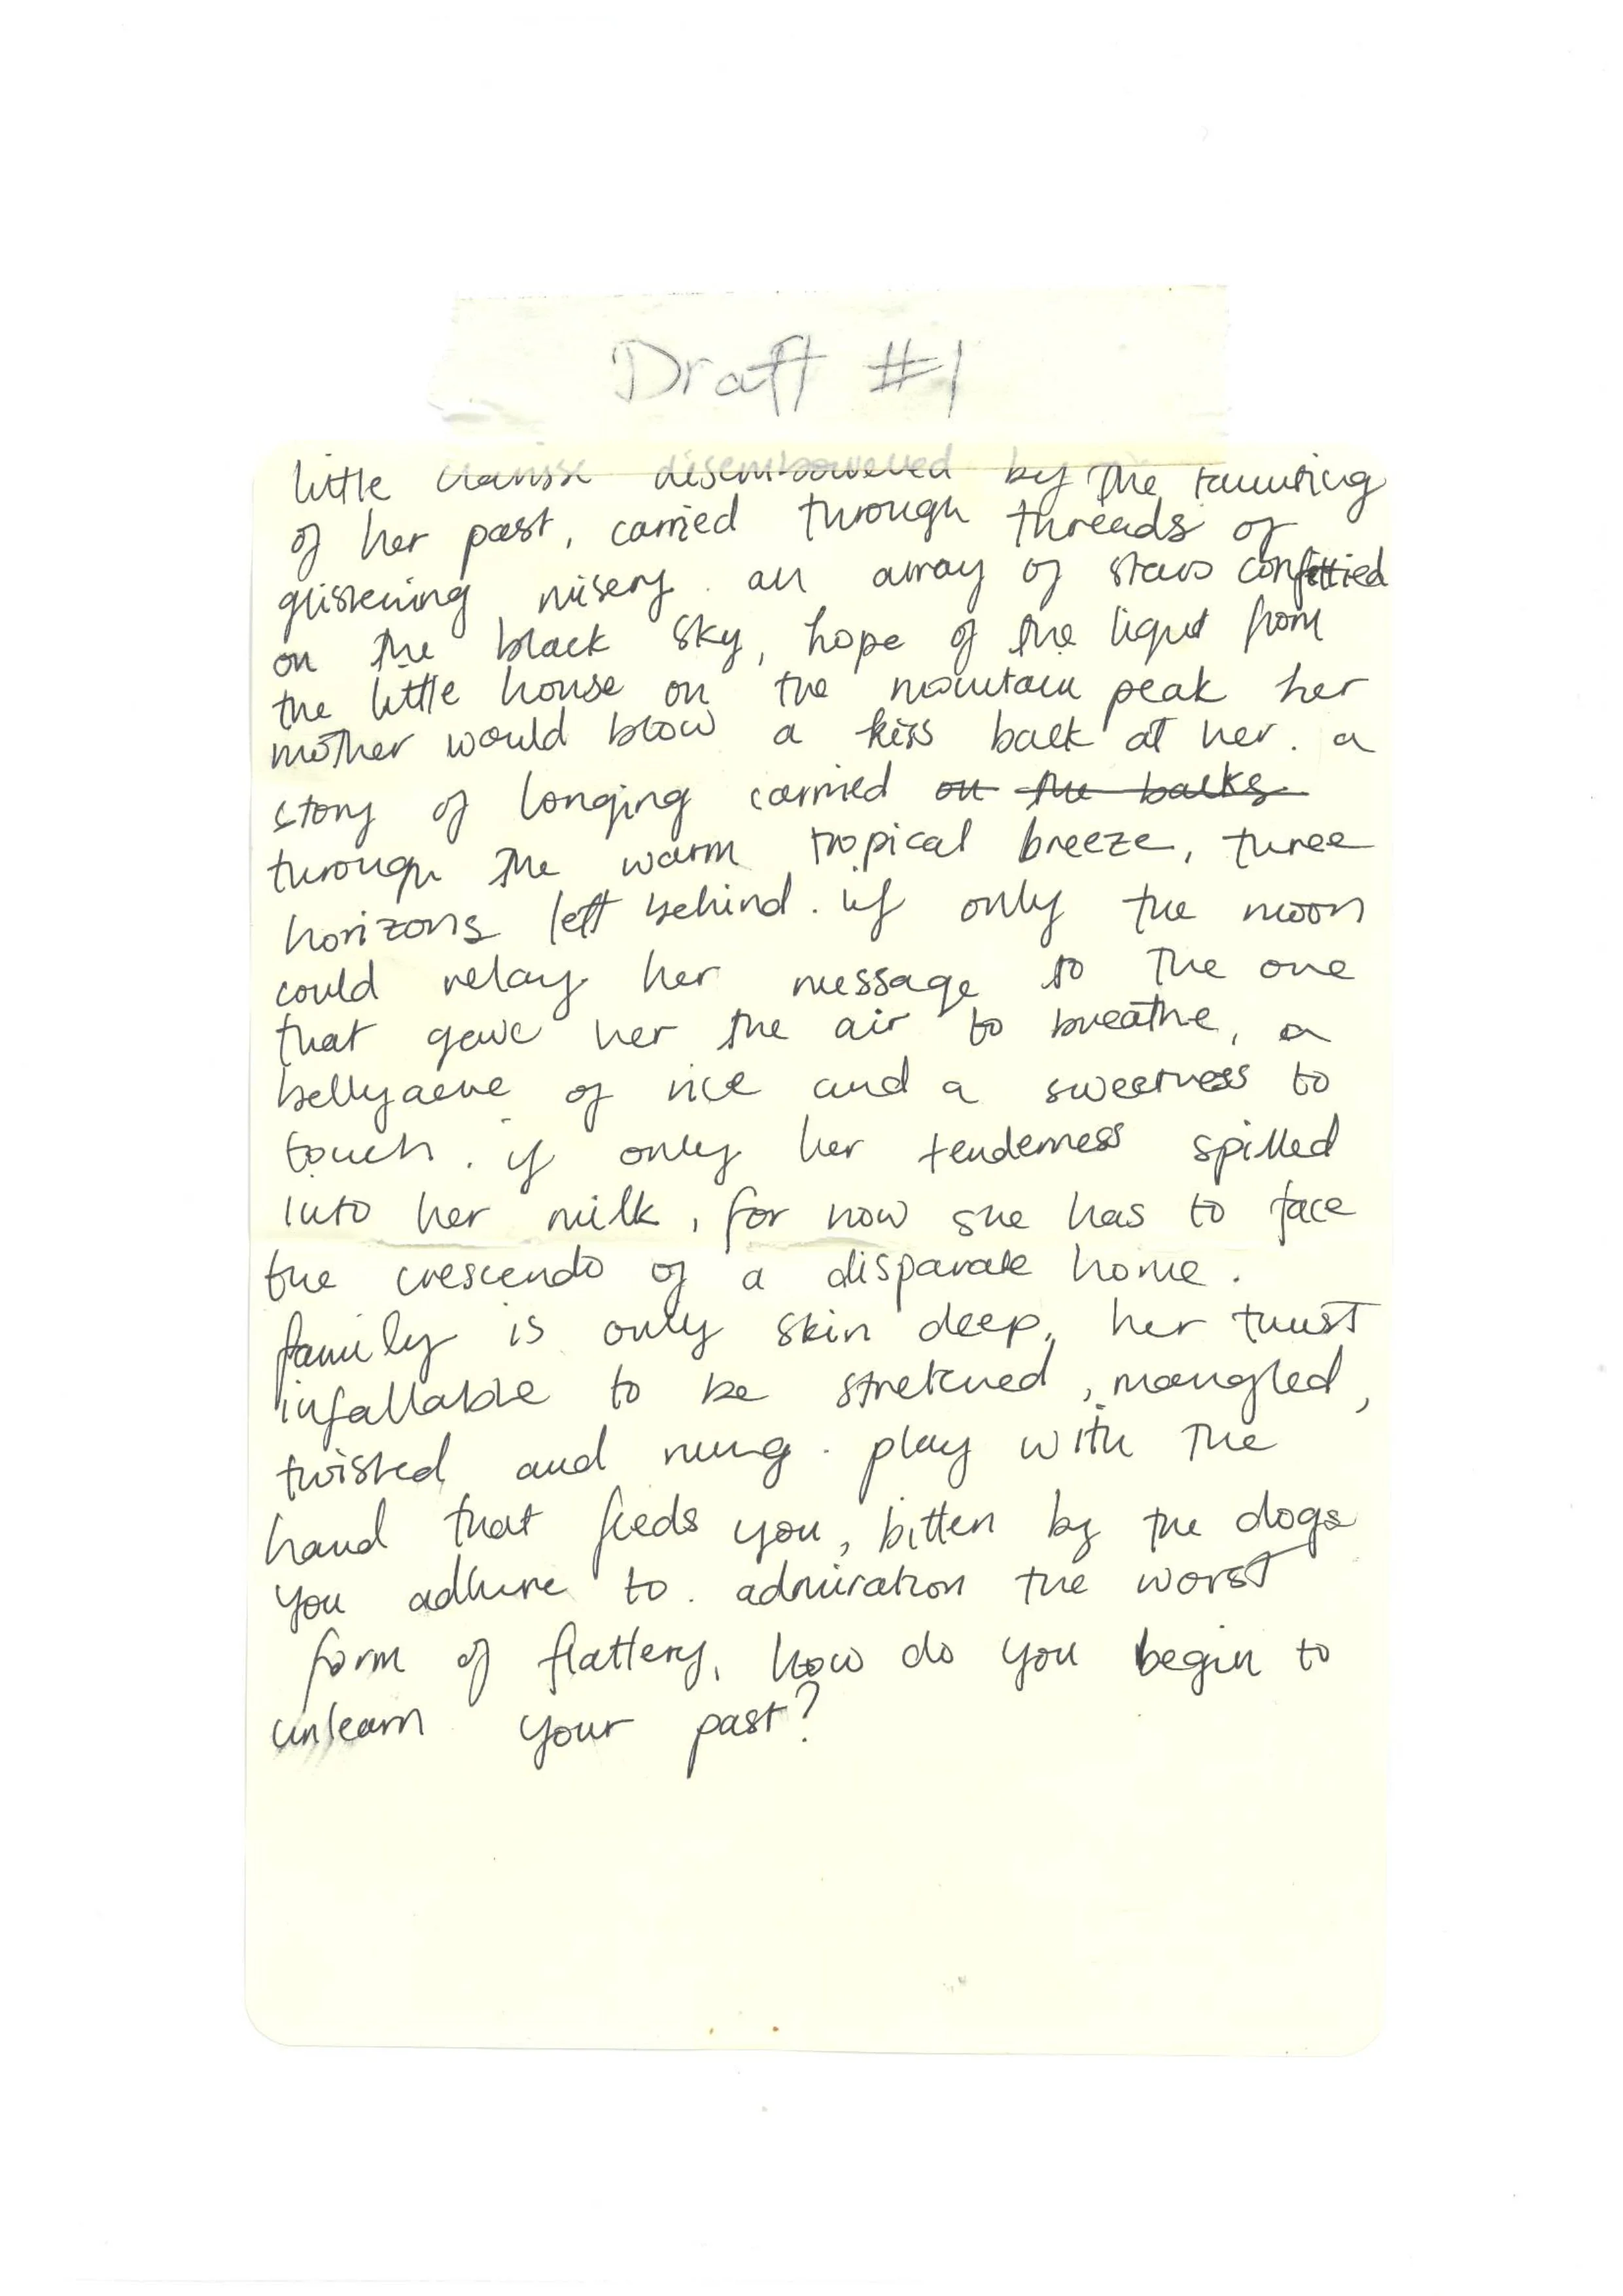 Draft #1
little clarisse disembowelled by the taunting
of her past, carried through threads of
glistening misery. an array of stars confettied
on the black sky, hope of the light from
the little house on the mountain peak her
mother would blow a kiss back at her. a
story of longing carried on the backs
through the warm tropical breeze, three
horizons left behind. if only the moon
could relay her message to the one
that gave her the air to breathe, a
bellyache of rice and a sweetness to
touch. if only her tenderness spilled
into her milk, for now she has to face
the crescendo of a disparate home.
family is only skin deep, her trust
infallable to be stretched, mangled,
twisted and rung. play with the
hand that feeds you, bitten by the dogs
you adhere to. admiration the worst
form of flattery, how do you begin to
unlearn your past?